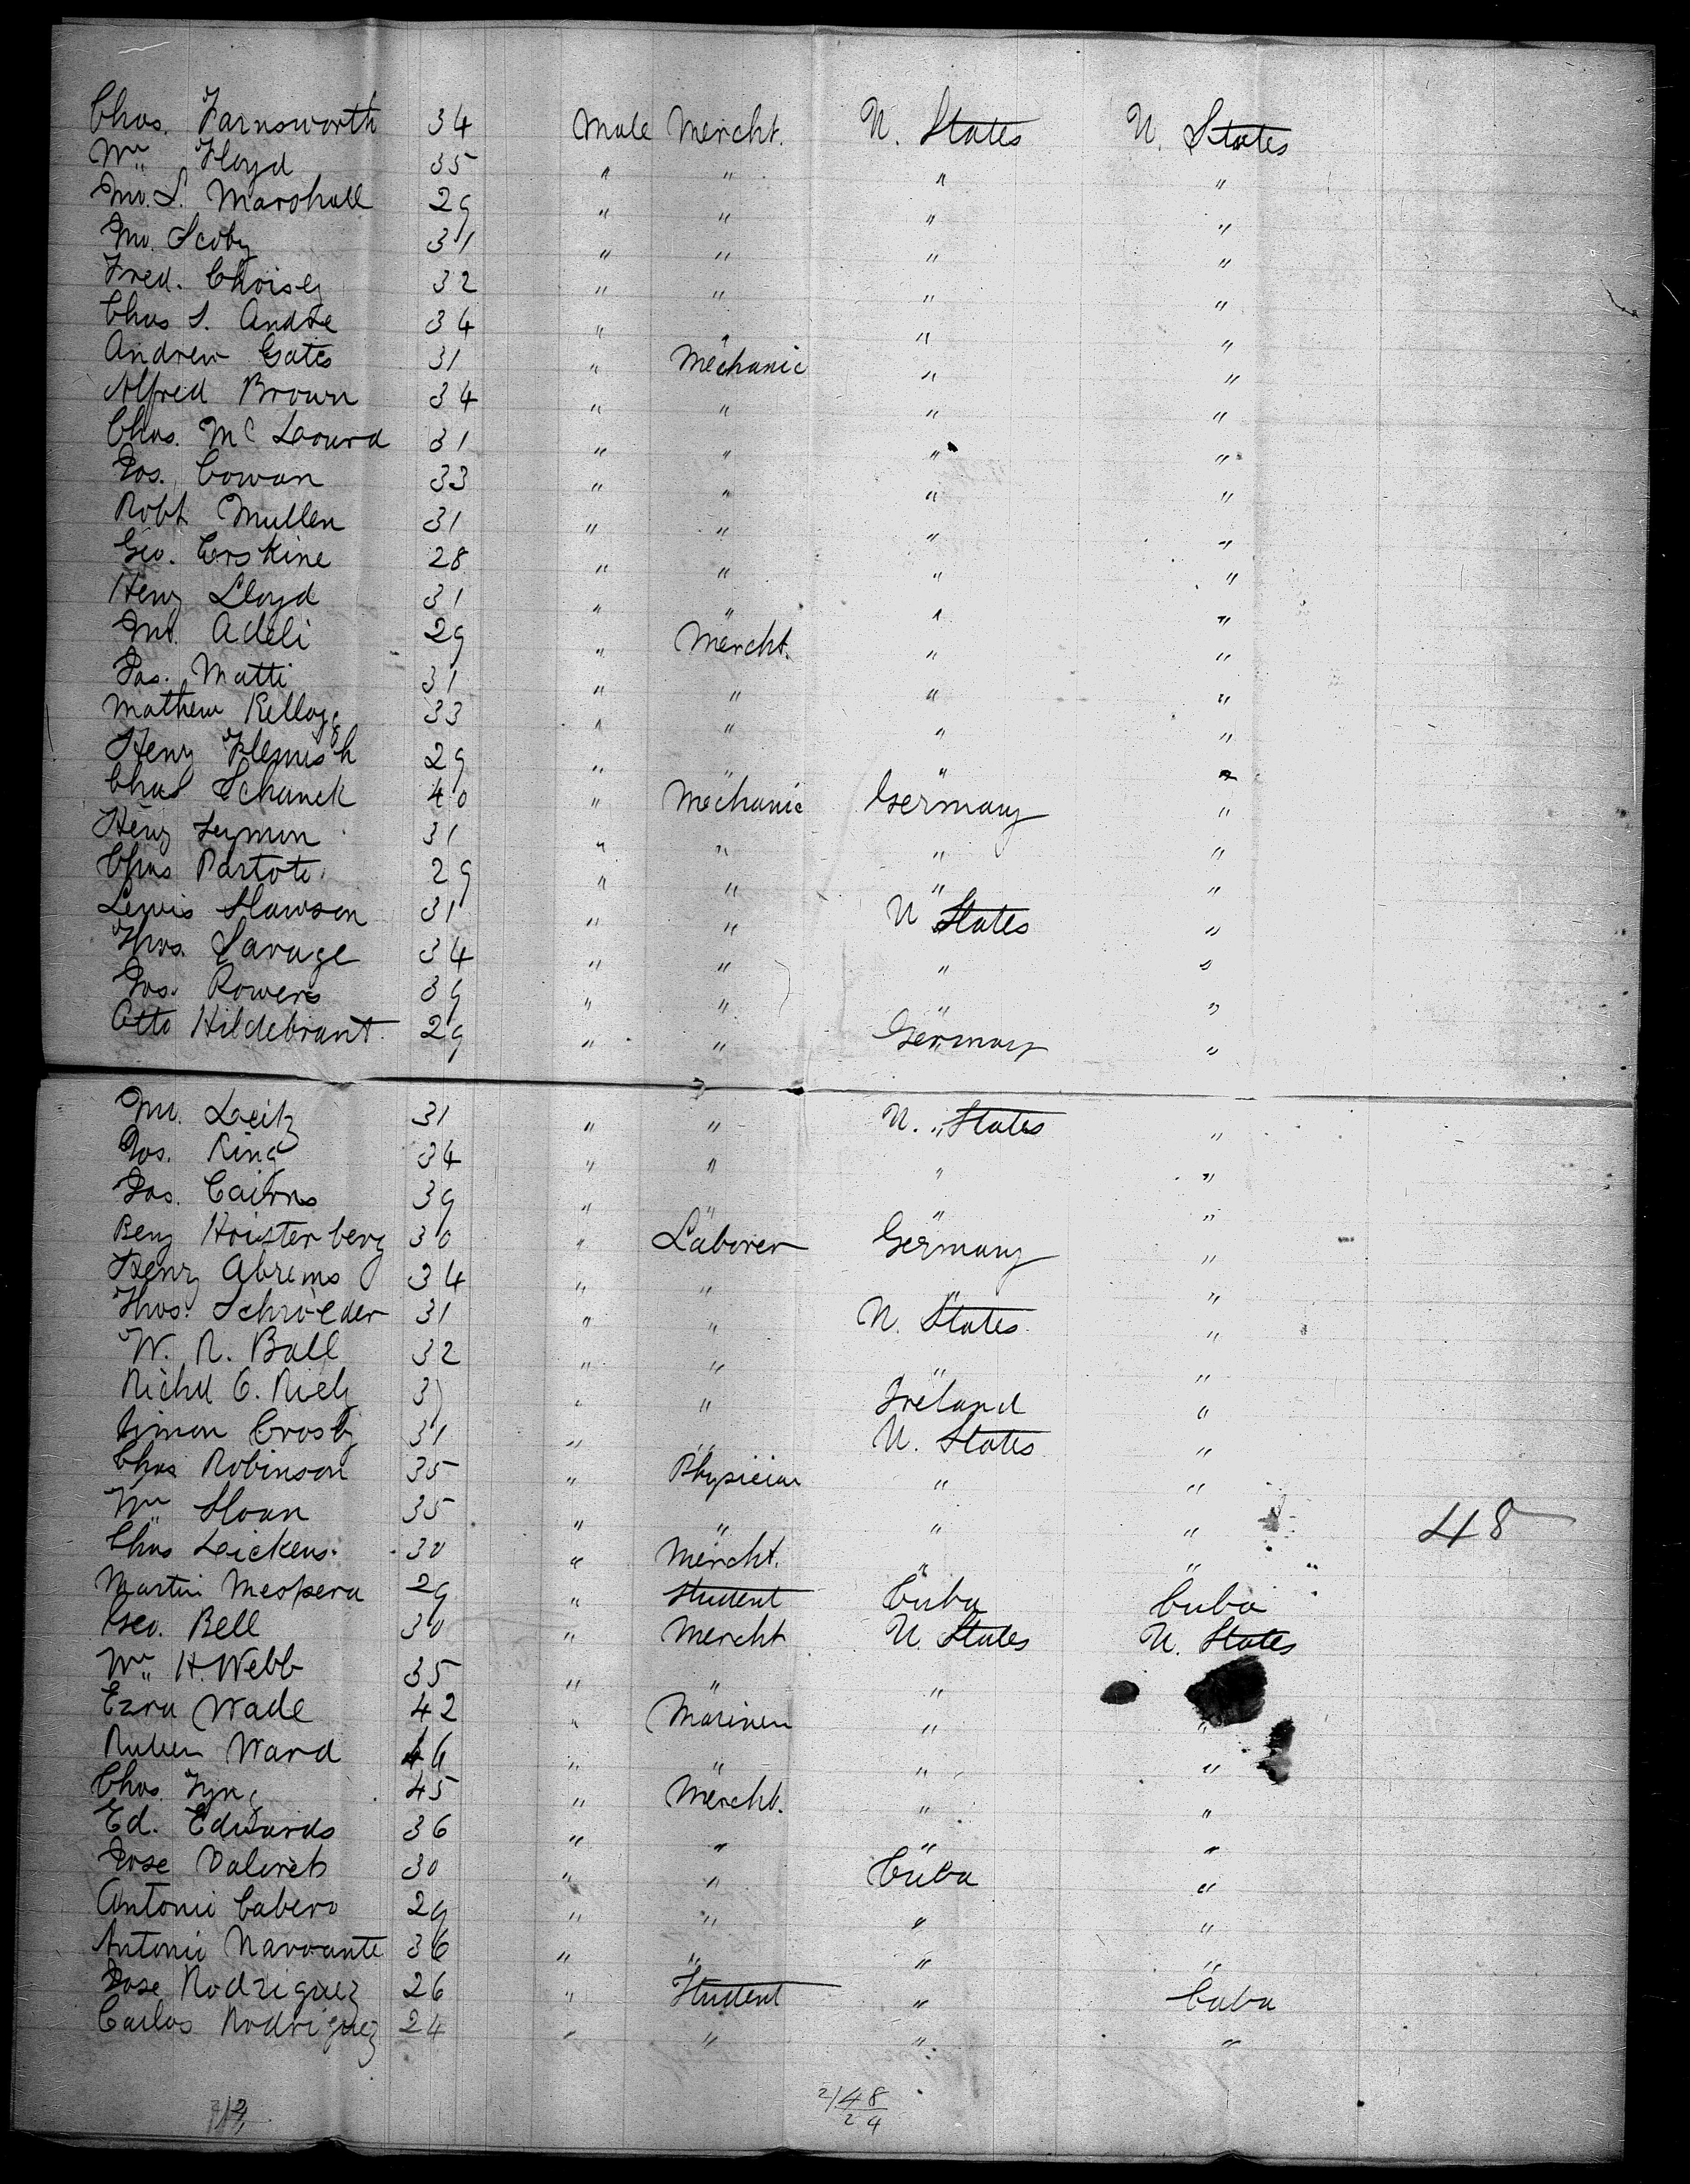 Chas. Farnsworth 34 Male Mercht. U. States U. States
Wm Floyd 35 " " " "
Jno. S. Marshall 29 " " " "
Jno. Scoby 31 " " " "
Fred. Choisey 32 " " " "
Chas S. Andre 34 " " " "
Andrew Gates 31 " Mechanic " "
Alfred Brown 34 " " " "
Chas. Mc 31 " " " "
Jos. Cowan 33 " " " "
Robt Mullen 31 " " " "
Geo. Erskine 28 " " " "
Heny Lloyd 31 " " " "
Jno. Adeli 29 " Mercht. " "
Jas. Matti 31 " " " "
Mathew Kellogg 33 " " " "
Heny Flemish 29 " " " "
Chas Schanck 40 " Mechanic Germany "
Heny 31 " " " "
Chas 29 " " " "
Lewis Slawson 31 " " U States "
Thos. Savage 34 " " " "
Jos. Rowers 39 " " " "
Otto Hildebrant. 29 " " Germany "
Jno. Leitz 31 " " U. States "
Jos. King 34 " " " "
Jas. Cairns 39 " " " "
Benj Hoisterberg 30 " Laborer Germany "
Henry Abrems 34 " " " "
Thos. Schroeder 31 " " U. States "
W. R. Ball 32 " " " "
Richd C. Riely " " Ireland "
Simon Crosby 31 " " U. States "
Chas Robinson 35 " Physician " "
Wm Sloan 35 " " " " 48
Chas Dickens 30 " Mercht. " "
Martin Mespera 29 " Student Cuba Cuba
Geo. Bell 30 " Mercht U. States U. States
Wm H. Webb 35 " " "
Ezra Wade 42 " Mariner " "
Ruben Ward " " " "
Chas. 45 " Mercht. " "
Ed. Edwards 36 " " " "
Jose 30 " " Cuba "
Antonio Cabero 29 " " " "
Antonio Navoante 36 " " " "
Jose Rodriguez 26 " Student " Cuba
Carlos Rodriguez 24 " " " "
2/48
24